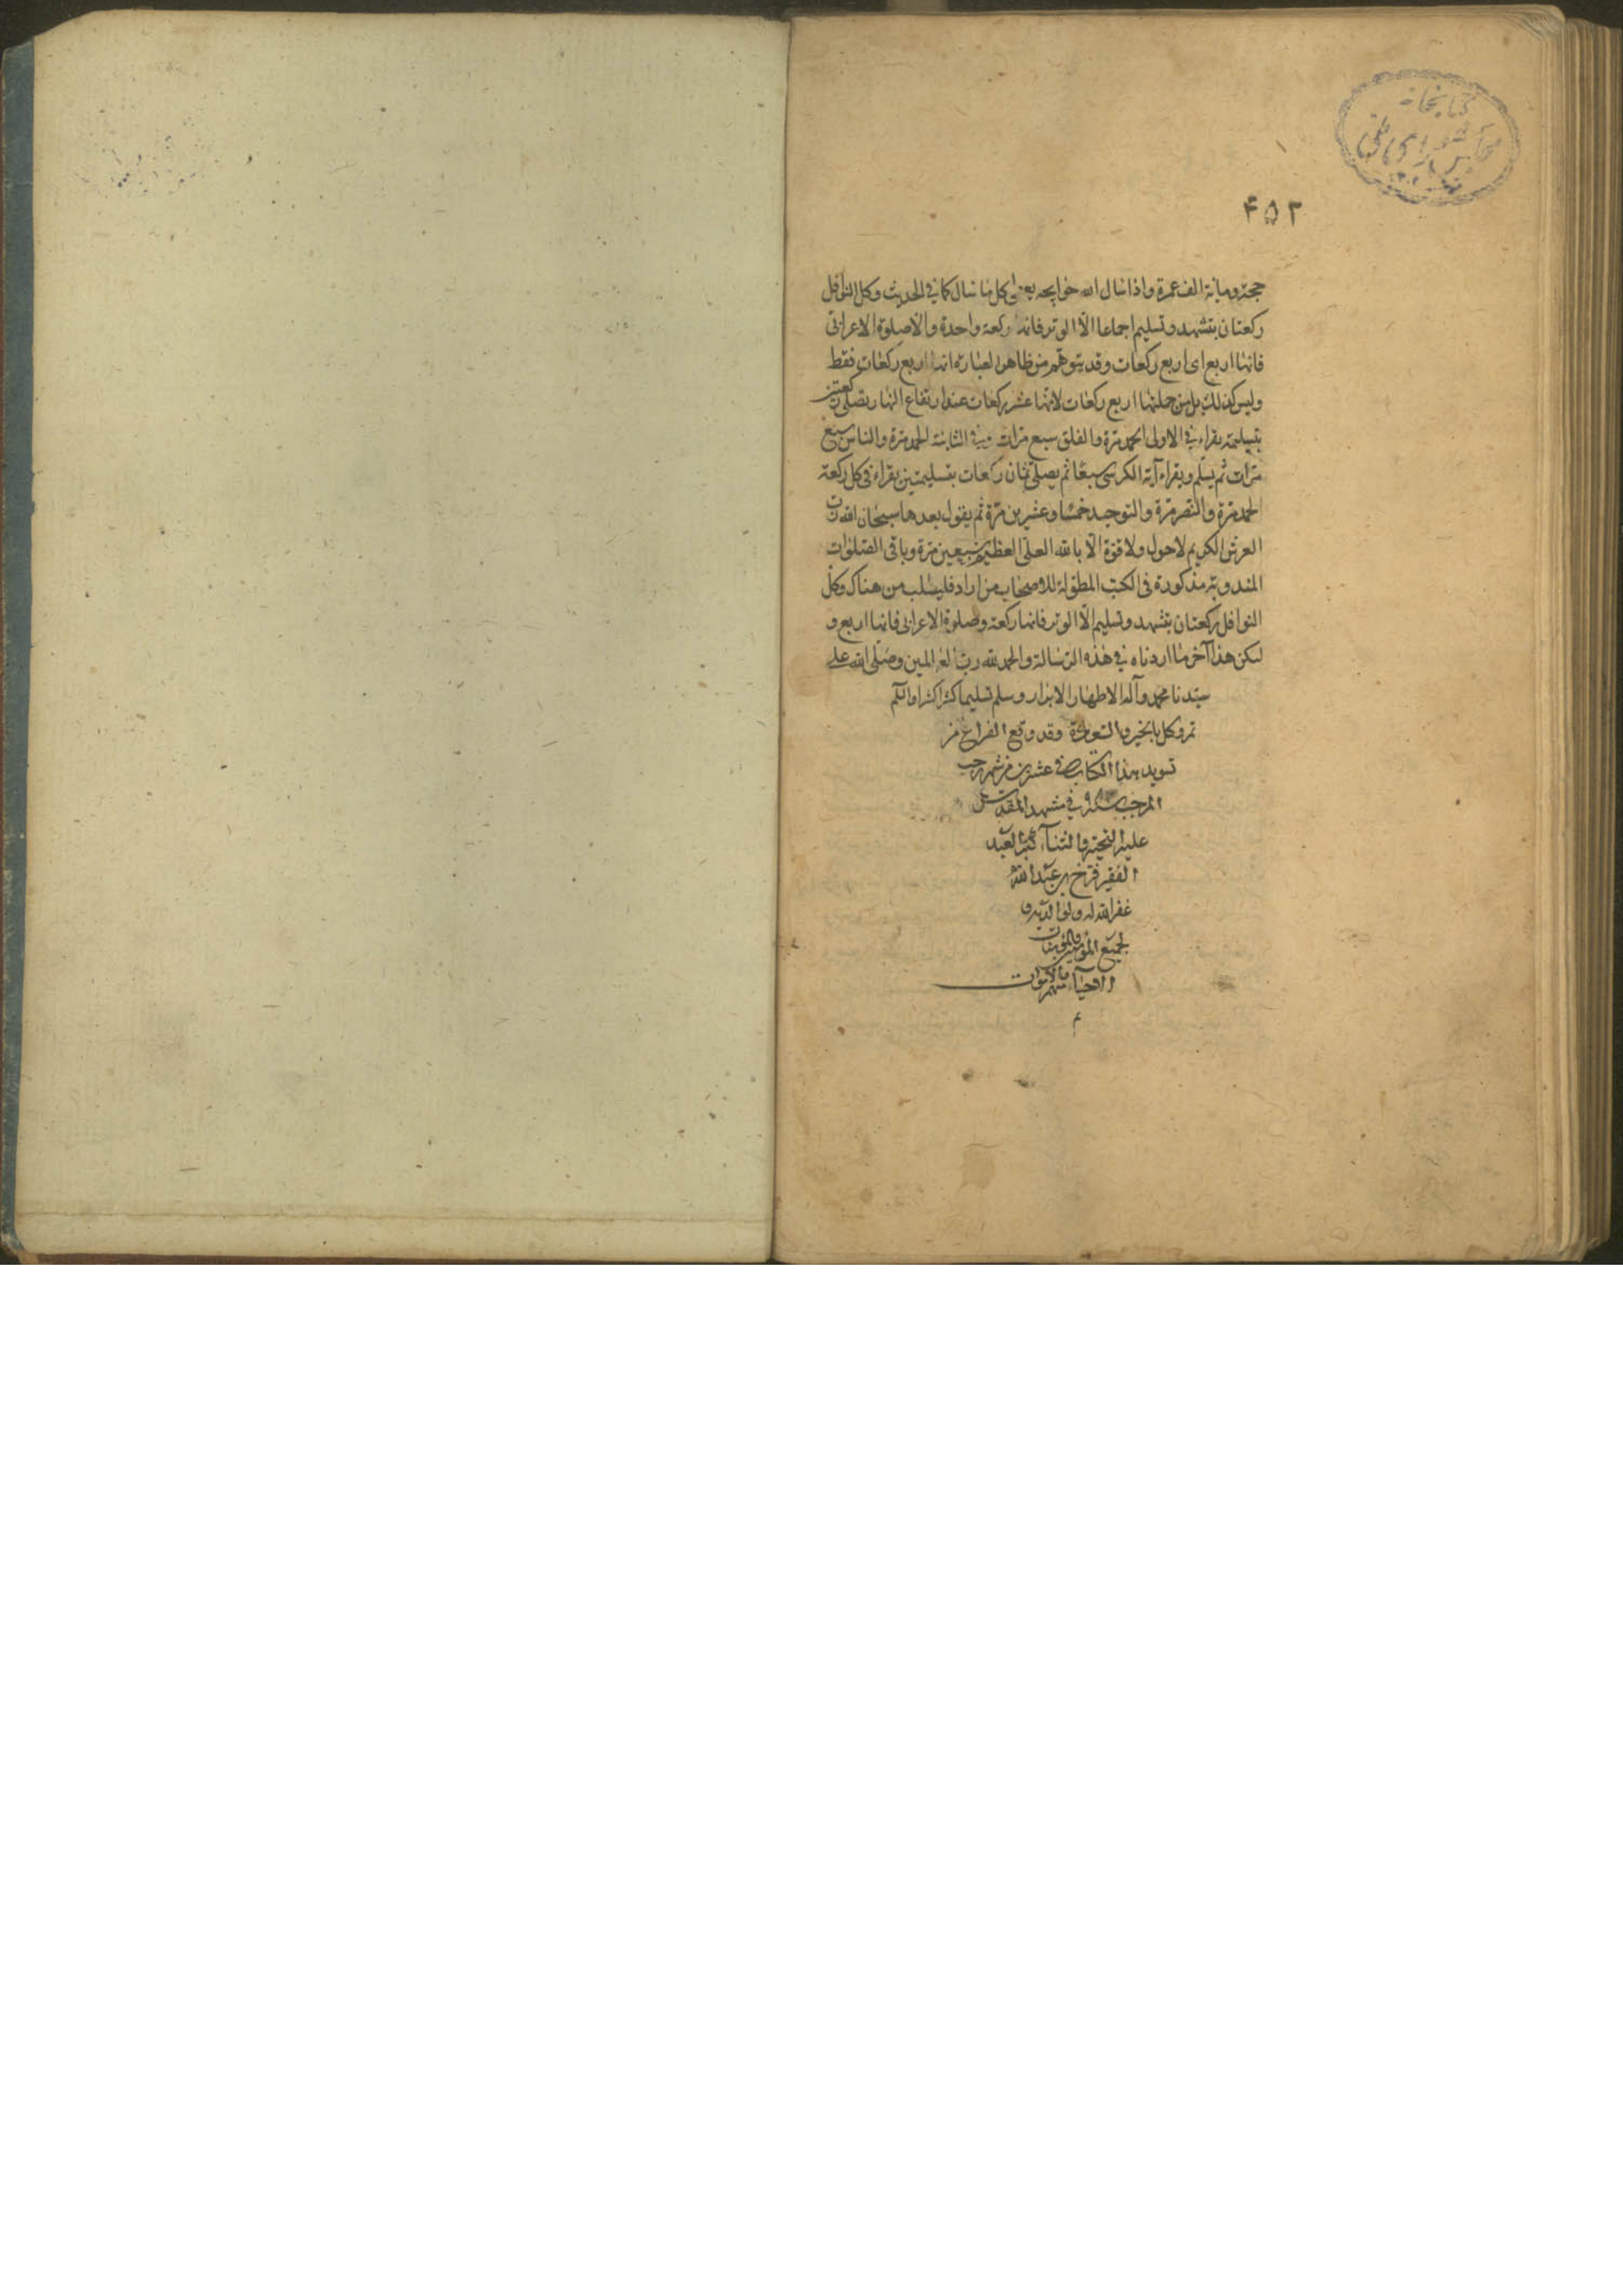 کتابخانه
مجلس شورای ملی
۴۵۲
حجة ومائة الف عمرة واذا سال الله حوایجه یعنی کل ما سال کما فی الحدیث وکل النوافل
رکعتان بتشهد وتسلیم اجماعا الّا الوتر فانه رکعة واحدة والّا صلوة الاعرابی
فانها اربع ای اربع رکعات وقد یتوهم من ظاهر العبارة انها اربع رکعات فقط
ولیس کذلک بل من جملتها اربع رکعات لانها عشر رکعات عند ارتفاع النهار تصلی رکعتین
بتسلیمة یقراء فی الاولی الحمد مرة والفلق سبع مرات وفی الثانیة الحمد مرة والناس سبع
مرات ثم یسلم ویقراء آیة الکرسی سبعا ثم یصلی ثمان رکعات بتسلیمتین یقراء فی کل رکعة
الحمد مرة والنصر مرة والتوحید خمسا وعشرین مرة ثم یقول بعدها سبحان الله رب
العرش الکریم لا حول ولا قوة الّا بالله العلی العظیم سبعین مرة وباقی الصلوات
المندوبة مذکورة فی الکتب المطولة للاصحاب من اراد فلیطلب من هناک وکل
النوافل رکعتان بتشهد وتسلیم الّا الوتر فانها رکعة وصلوة الاعرابی فانها اربع و
لیکن هذا آخر ما اردناه فی هذه الرسالة والحمد لله رب العالمین وصلی الله علی
سیدنا محمد وآله الاطهار الابرار وسلم تسلیما کثیرا کثیرا
بالخیر والسعادة وقد وقع الفراغ من
تسوید هذا الکتاب فی عشرین من شهر رجب
المرجب سنة فی مشهد المقدس
علیه التحیة والثناء کتبه العبد
الفقیر فرخ بن عبد الله
غفر الله له ولوالدیه و
لجمیع المؤمنین والمؤمنات
الاحیاء منهم والاموات
م